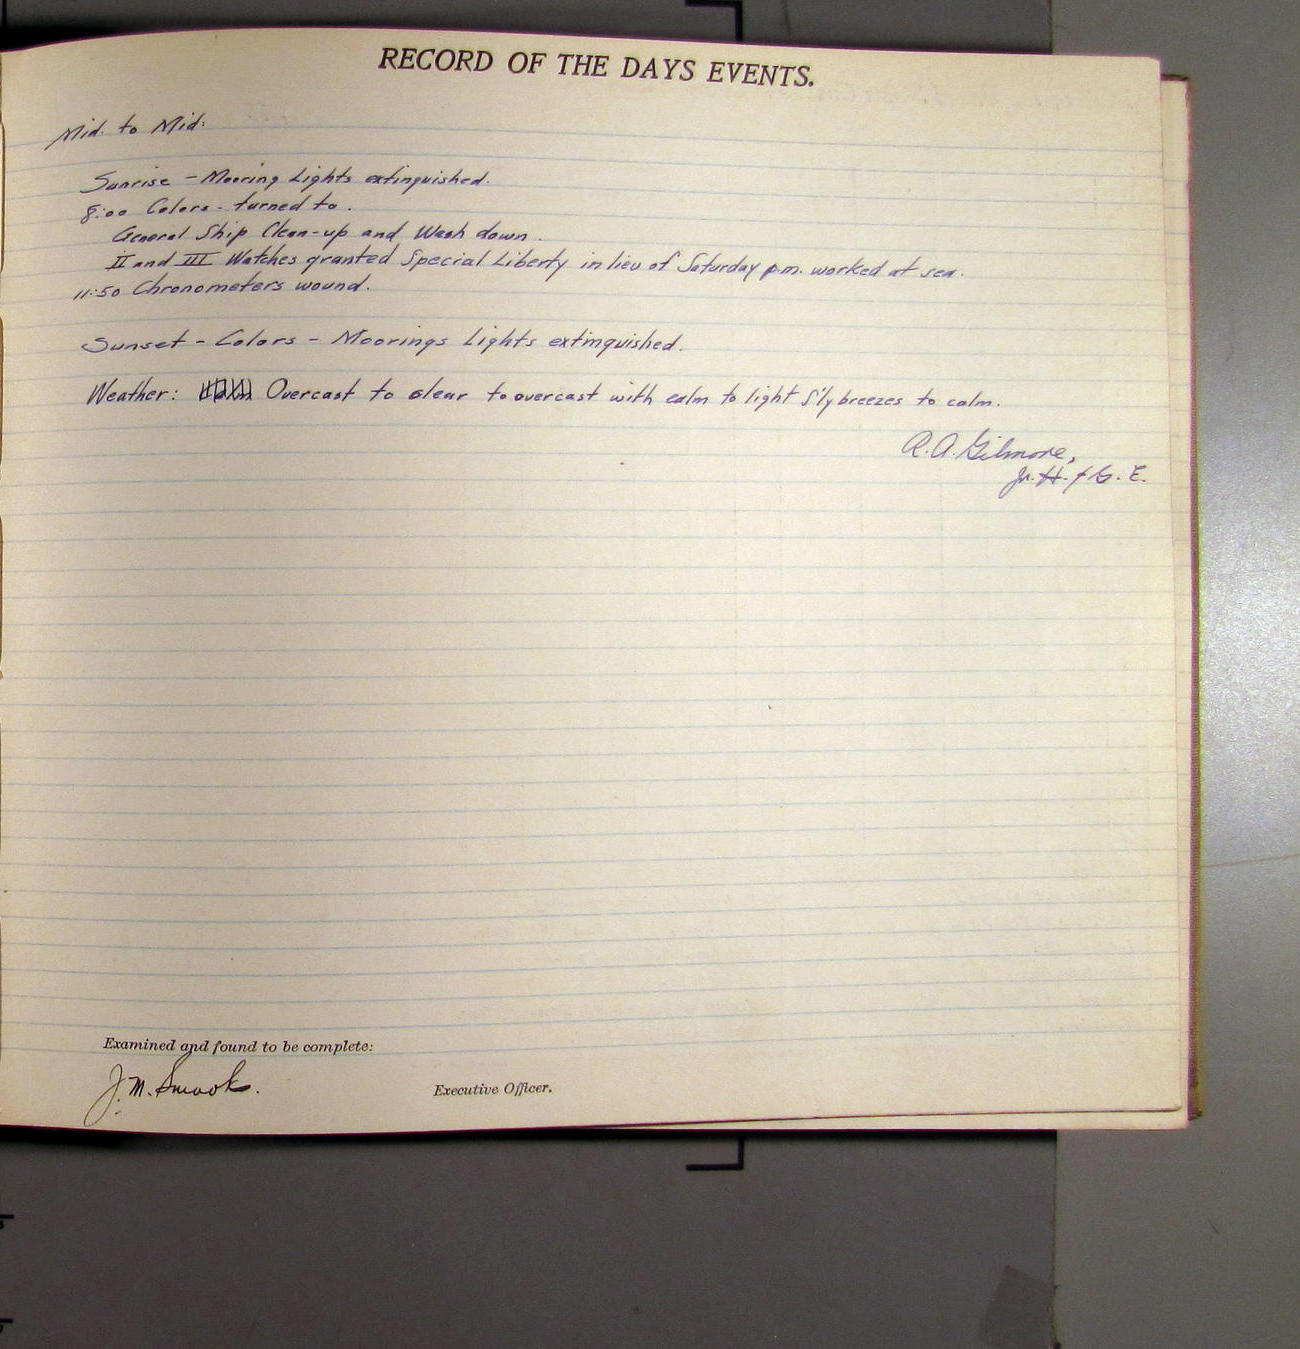 RECORD OF THE DAYS EVENTS.
Mid. to Mid.
Sunrise - Mooring Lights extinguished.
8:00 Colors - turned to.
General Ship Clean-up and Wash down.
II and III Watches granted Special Liberty in lieu of Saturday p.m. worked at sea.
11:50 Chronometers wound.
Sunset - Colors - Moorings Lights extinguished.
Weather: Overcast to clear to overcast with calm to light S'ly breezes to calm.
R. A. Gilmore,
Jr. H. & G. E.
Examined and found to be complete:
J. M. Smook.
Executive Officer.